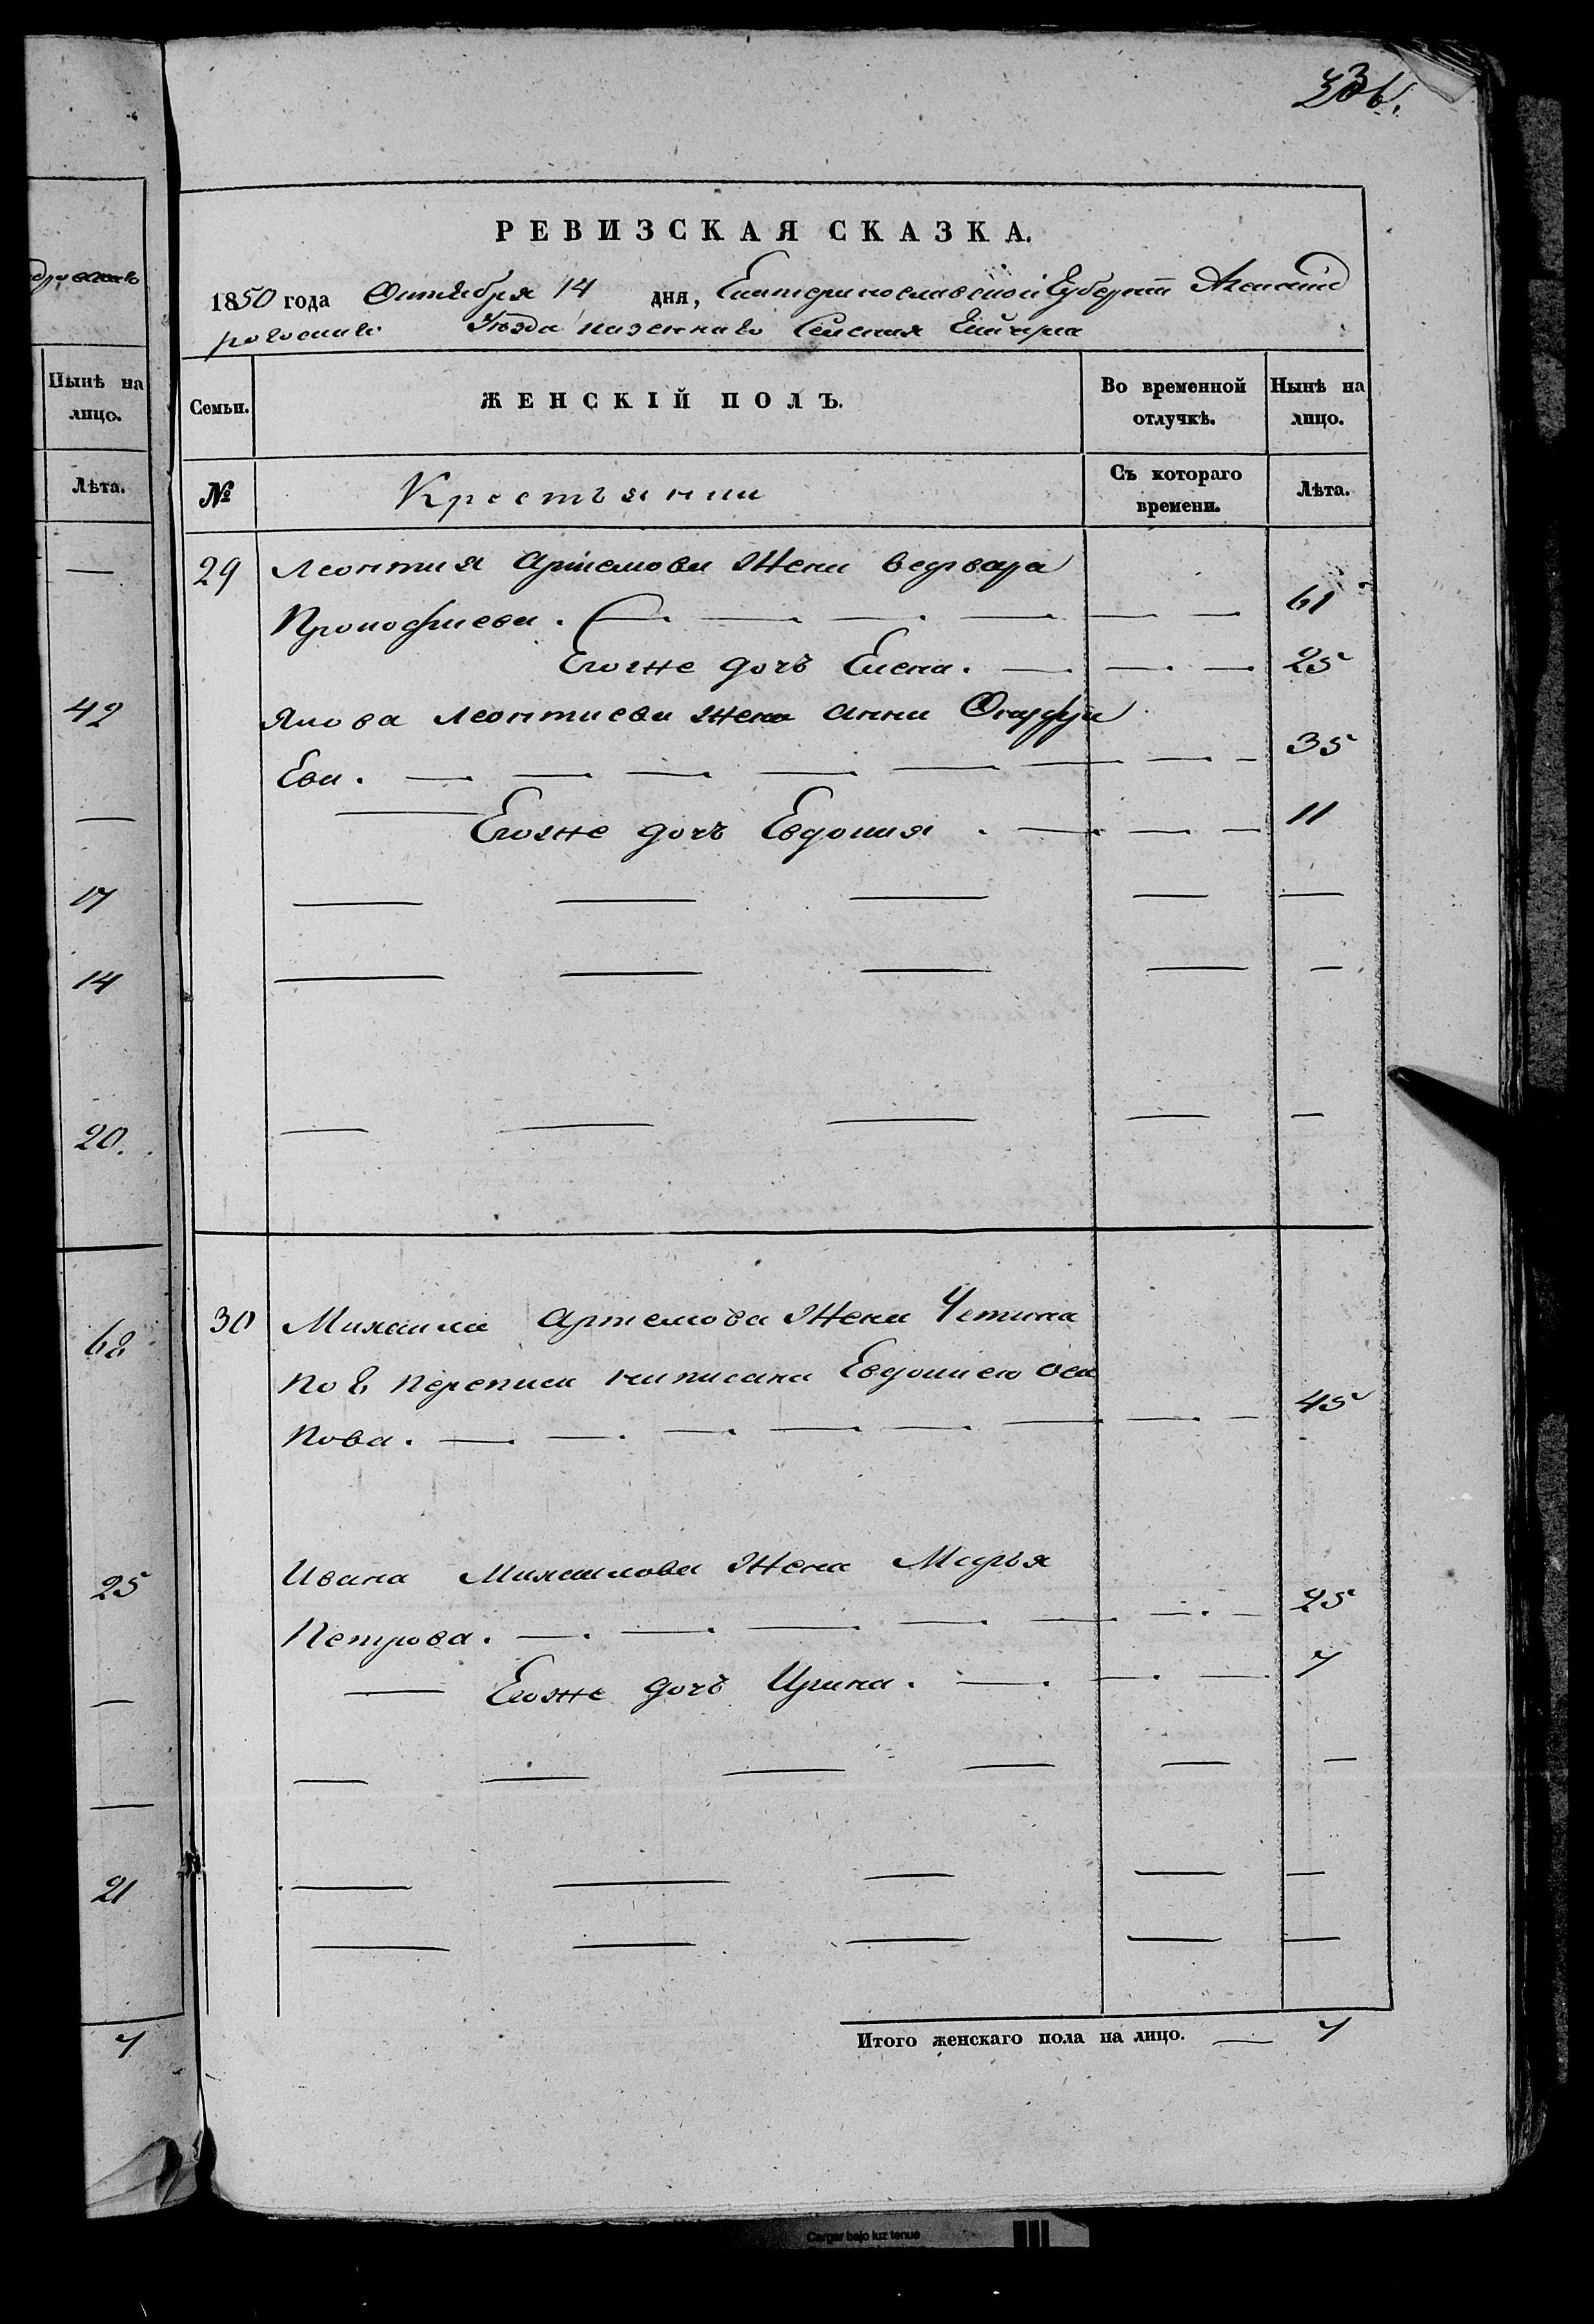 336.
РЕВИЗСКАЯ СКАЗКА.
1850 года Октября 14 дня, Екатеринославской Губернии Александ
ровскаго Уѣзда казеннаго Селения
Нынѣ на
лицо.
Лѣта.
Семьи.
ЖЕНСКІЙ ПОЛЪ.
Во временной
отлучкѣ.
Нынѣ на
лицо.
№
Крестьянки
Съ котораго
времени.
Лѣта.
29 Леонтия Артемова Жена варвара
Прокофиева. — — — — — — 61
Егоже дочь Елена. — — — 25
Якова леонтиева жена анна Онуфри
Ева. — — — — — — — — 35
Егоже дочь Евдокия. — — — 11
30 Михаила Артемова Жена Устина
по 8 переписи написана Евдокиею оси
пова. — — — — — — — — 45
Ивана Михаилова Жена Марья
Петрова. — — — — — — — 25
— Егоже дочь Ирина. — — — 7
Итого женскаго пола на лицо. — 7
42
—
17
14
20.
68
25
—
—
21
7